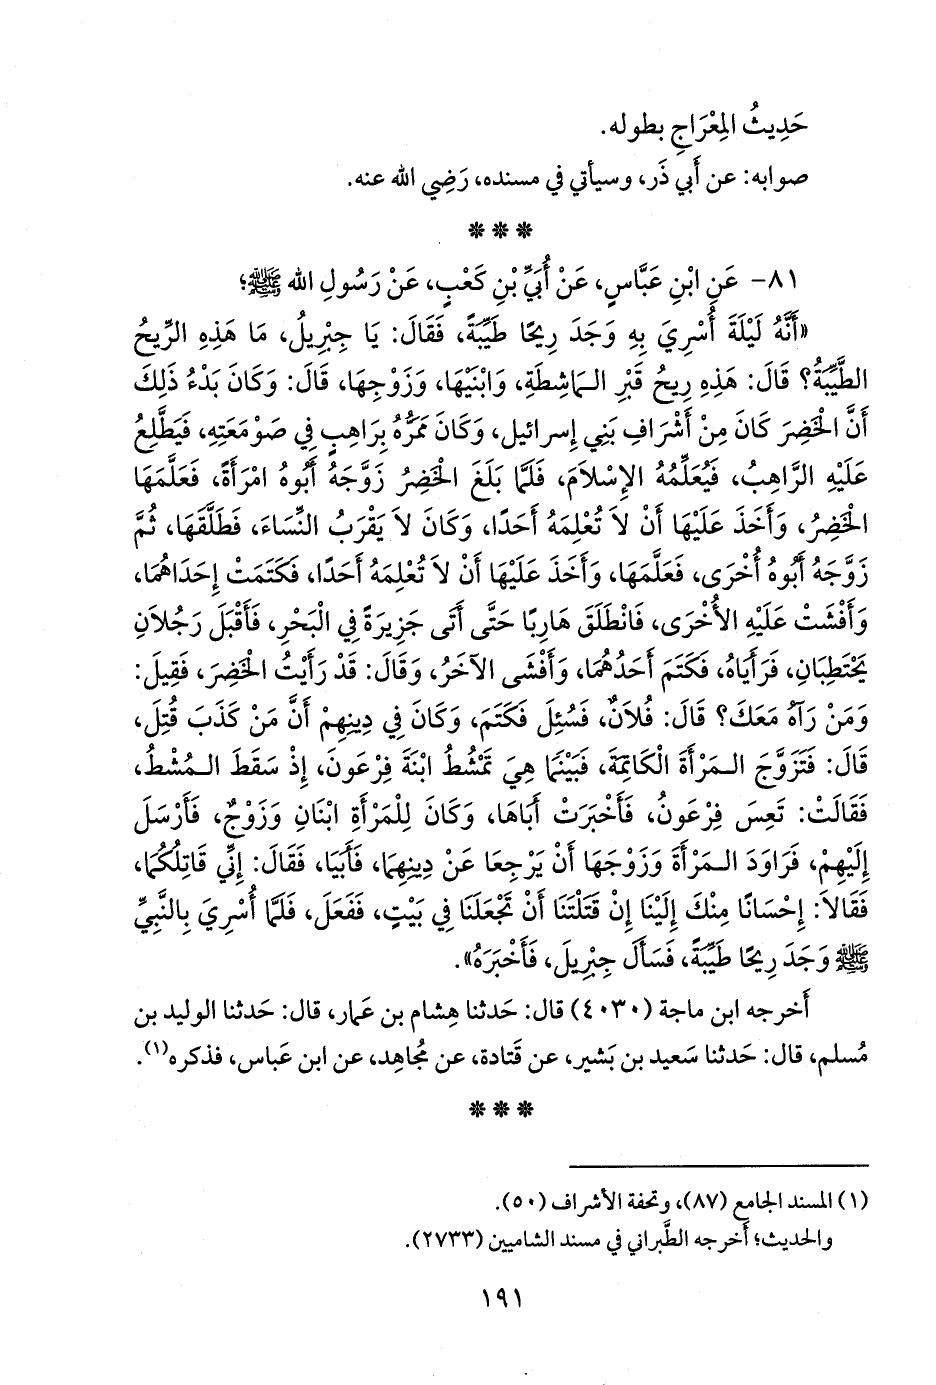 حَدِيثُ المِعْرَاجِ بطوله.
صوابه: عن أَبي ذَر، وسيأتي في مسنده، رَضِي الله عنه.
* * *
٨١- عَنِ ابْنِ عَبَّاسٍ، عَنْ أُبَيِّ بْنِ كَعْبٍ، عَنْ رَسُولِ الله ﷺ؛
«أَنَّهُ لَيْلَةَ أُسْرِيَ بِهِ وَجَدَ رِيحًا طَيِّبَةً، فَقَالَ: يَا جِبْرِيلُ، مَا هَذِهِ الرِّيحُ
الطَّيِّبَةُ؟ قَالَ: هَذِهِ رِيحُ قَبْرِ الـمَاشِطَةِ، وَابْنَيْهَا، وَزَوْجِهَا، قَالَ: وَكَانَ بَدْءُ ذَلِكَ
أَنَّ الْخَضِرَ كَانَ مِنْ أَشْرَافِ بَنِي إِسرائيل، وَكَانَ مَمَرُّهُ بِرَاهِبٍ فِي صَوْمَعَتِهِ، فَيَطَّلِعُ
عَلَيْهِ الرَّاهِبُ، فَيُعَلِّمُهُ الإِسْلاَمَ، فَلَمَّا بَلَغَ الْخَضِرُ زَوَّجَهُ أَبُوهُ امْرَأَةً، فَعَلَّمَهَا
الْخَضِرُ، وَأَخَذَ عَلَيْهَا أَنْ لاَ تُعْلِمَهُ أَحَدًا، وَكَانَ لاَ يَقْرَبُ النِّسَاءَ، فَطَلَّقَهَا، ثُمَّ
زَوَّجَهُ أَبُوهُ أُخْرَى، فَعَلَّمَهَا، وَأَخَذَ عَلَيْهَا أَنْ لاَ تُعْلِمَهُ أَحَدًا، فَكَتَمَتْ إِحَدَاهُمَا،
وَأَفْشَتْ عَلَيْهِ الأُخْرَى، فَانْطَلَقَ هَارِبًا حَتَّى أَتَى جَزِيرَةً فِي الْبَحْرِ، فَأَقْبَلَ رَجُلاَنِ
يَحْتَطِبَانِ، فَرَأَيَاهُ، فَكَتَمَ أَحَدُهُمَا، وَأَفْشَى الآخَرُ، وَقَالَ: قَدْ رَأَيْتُ الْخَضِرَ، فَقِيلَ:
وَمَنْ رَآهُ مَعَكَ؟ قَالَ: فُلاَنٌ، فَسُئِلَ فَكَتَمَ، وَكَانَ فِي دِينِهِمْ أَنَّ مَنْ كَذَبَ قُتِلَ،
قَالَ: فَتَزَوَّجَ الـمَرْأَةَ الْكَاتِمَةَ، فَبَيْنَمَا هِيَ تَمْشُطُ ابْنَةَ فِرْعَونَ، إِذْ سَقَطَ الـمُشْطُ،
فَقَالَتْ: تَعِسَ فِرْعَونُ، فَأَخْبَرَتْ أَبَاهَا، وَكَانَ لِلْمَرْأَةِ ابْنَانِ وَزَوْجٌ، فَأَرْسَلَ
إِلَيْهِمْ، فَرَاوَدَ الـمَرْأَةَ وَزَوْجَهَا أَنْ يَرْجِعَا عَنْ دِينِهِمَا، فَأَبَيَا، فَقَالَ: إِنِّي قَاتِلُكُمَا،
فَقَالاَ: إِحْسَانًا مِنْكَ إِلَيْنَا إِنْ قَتَلْتَنَا أَنْ تَجْعَلَنَا فِي بَيْتٍ، فَفَعَلَ، فَلَمَّا أُسْرِيَ بِالنَّبِيِّ
ﷺ وَجَدَ رِيحًا طَيِّبَةً، فَسَأَلَ جِبْرِيلَ، فَأَخْبَرَهُ».
أَخرجه ابن ماجة (٤٠٣٠) قال: حَدثنا هِشام بن عَمار، قال: حَدثنا الوليد بن
مُسلم، قال: حَدثنا سَعيد بن بَشير، عن قَتادة، عن مُجاهِد، عن ابن عَباس، فذكره(١).
* * *
(١) المسند الجامع (٨٧)، وتحفة الأشراف (٥٠).
والحديث؛ أَخرجه الطَّبراني في مسند الشاميين (٢٧٣٣).
١٩١